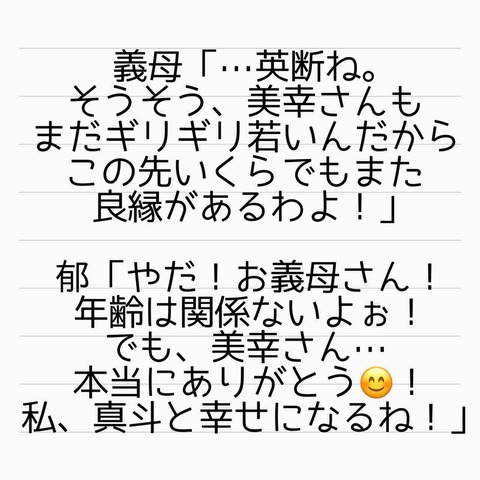 義母「…英断ね。
そうそう、美幸さんも
まだギリギリ若いんだから
この先いくらでもまた
良縁があるわよ！」
郁「やだ！お義母さん！
年齢は関係ないよぉ！
でも、美幸さん…
本当にありがとう😊！
私、真斗と幸せになるね！」